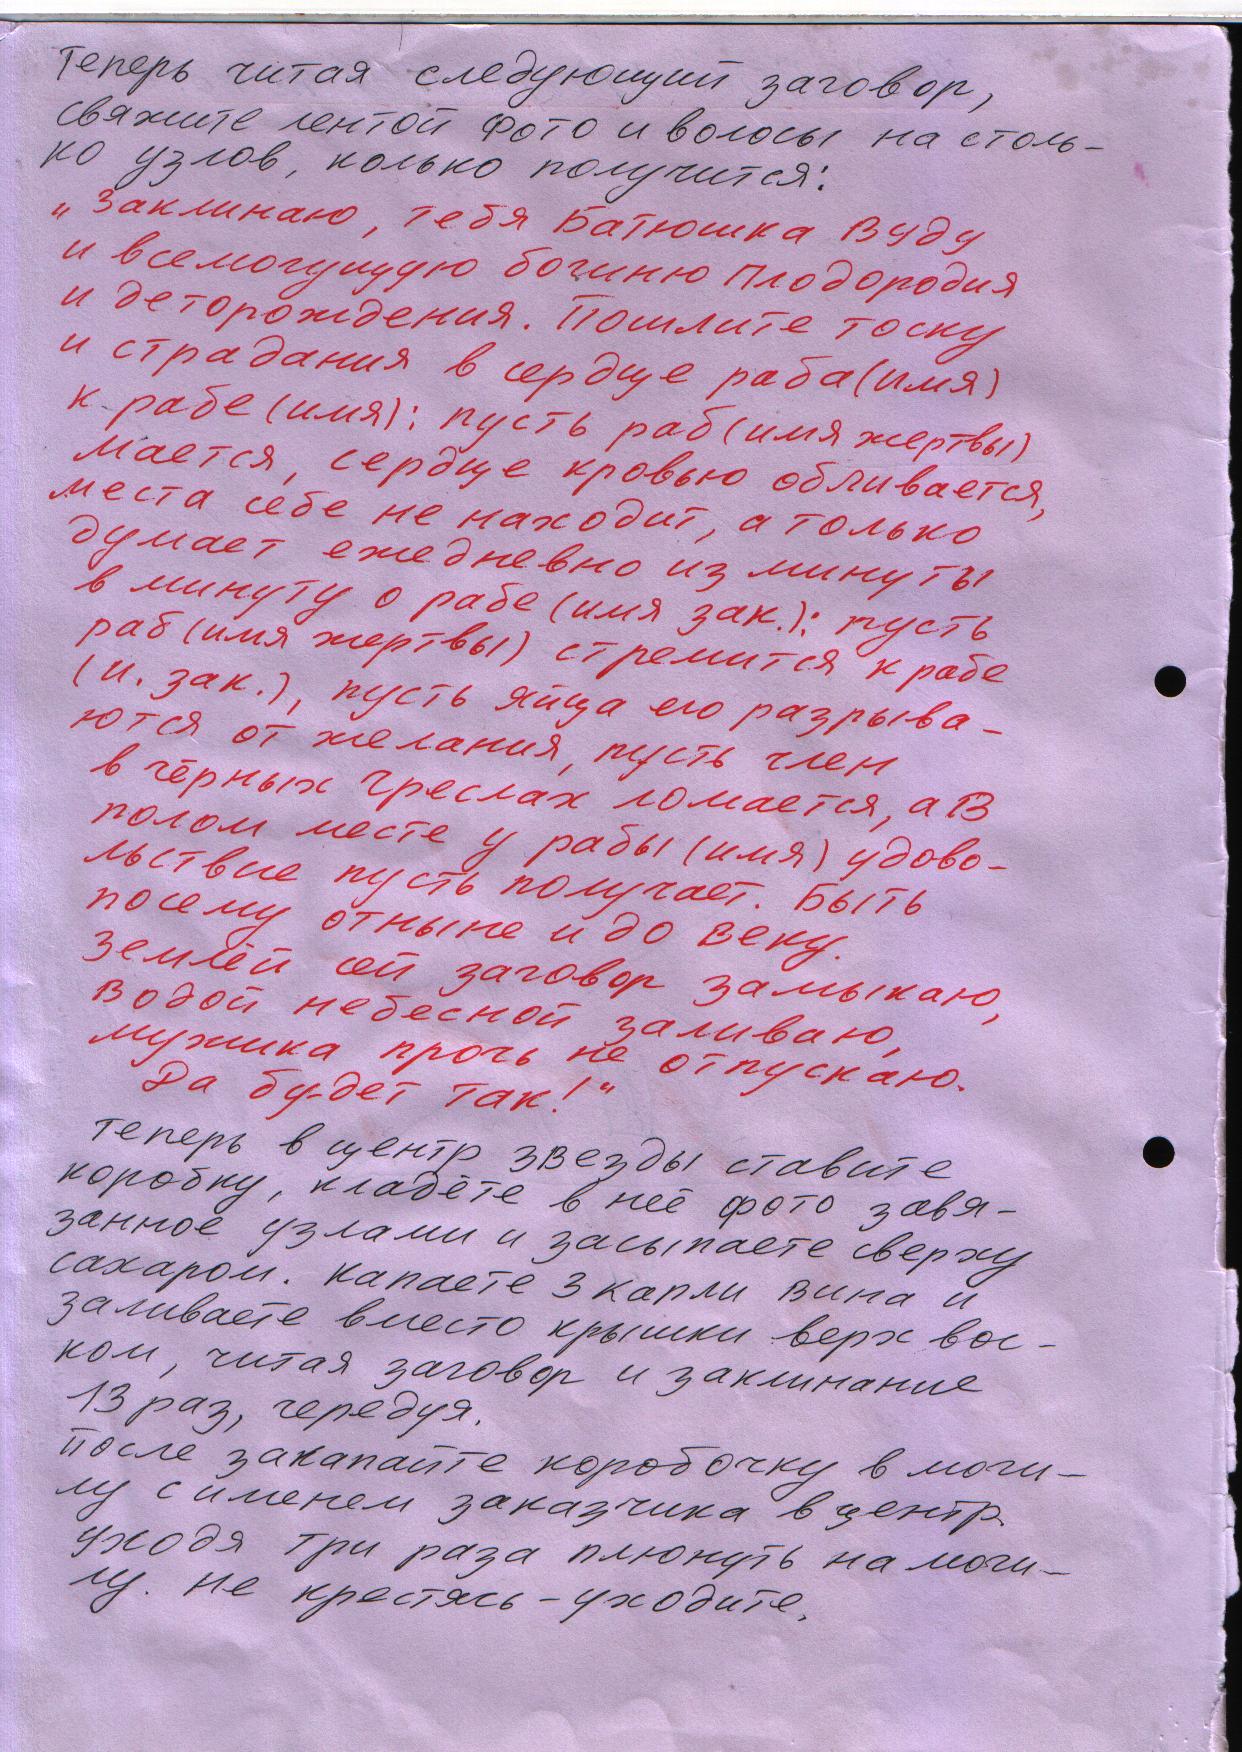 Теперь читая следующий заговор,
свяжите лентой фото и волосы на столь-
ко узлов, колько получится:
„Заклинаю, тебя Батюшка Вуду
и всемогущую богиню Плодородия
и деторождения. Пошлите тоску
и страдания в сердце раба(имя)
к рабе(имя): пусть раб(имя жертвы)
мается, сердце кровью обливается,
места себе не находит, а только
думает ежедневно из минуты
в минуту о рабе(имя зак.): пусть
раб(имя жертвы) стремится к рабе
(и. зак.), пусть яйца его разрыва-
ются от желания, пусть член
в чёрных чреслах ломается, а в
полом месте у рабы(имя) удово-
льствие пусть получает. Быть
посему отныне и до веку.
Землёй сей заговор замыкаю,
Водой небесной заливаю,
мужика прочь не отпускаю.
Да будет так!“
Теперь в центр звезды ставите
коробку, кладёте в неё фото завя-
занное узлами и засыпаете сверху
сахаром. Капаете 3 капли вина и
заливаете вместо крышки верх вос-
ком, читая заговор и заклинание
13 раз, чередуя.
После закапайте коробочку в моги-
лу с именем заказчика в центр.
уходя три раза плюнуть на моги-
лу. не крестясь - уходите.